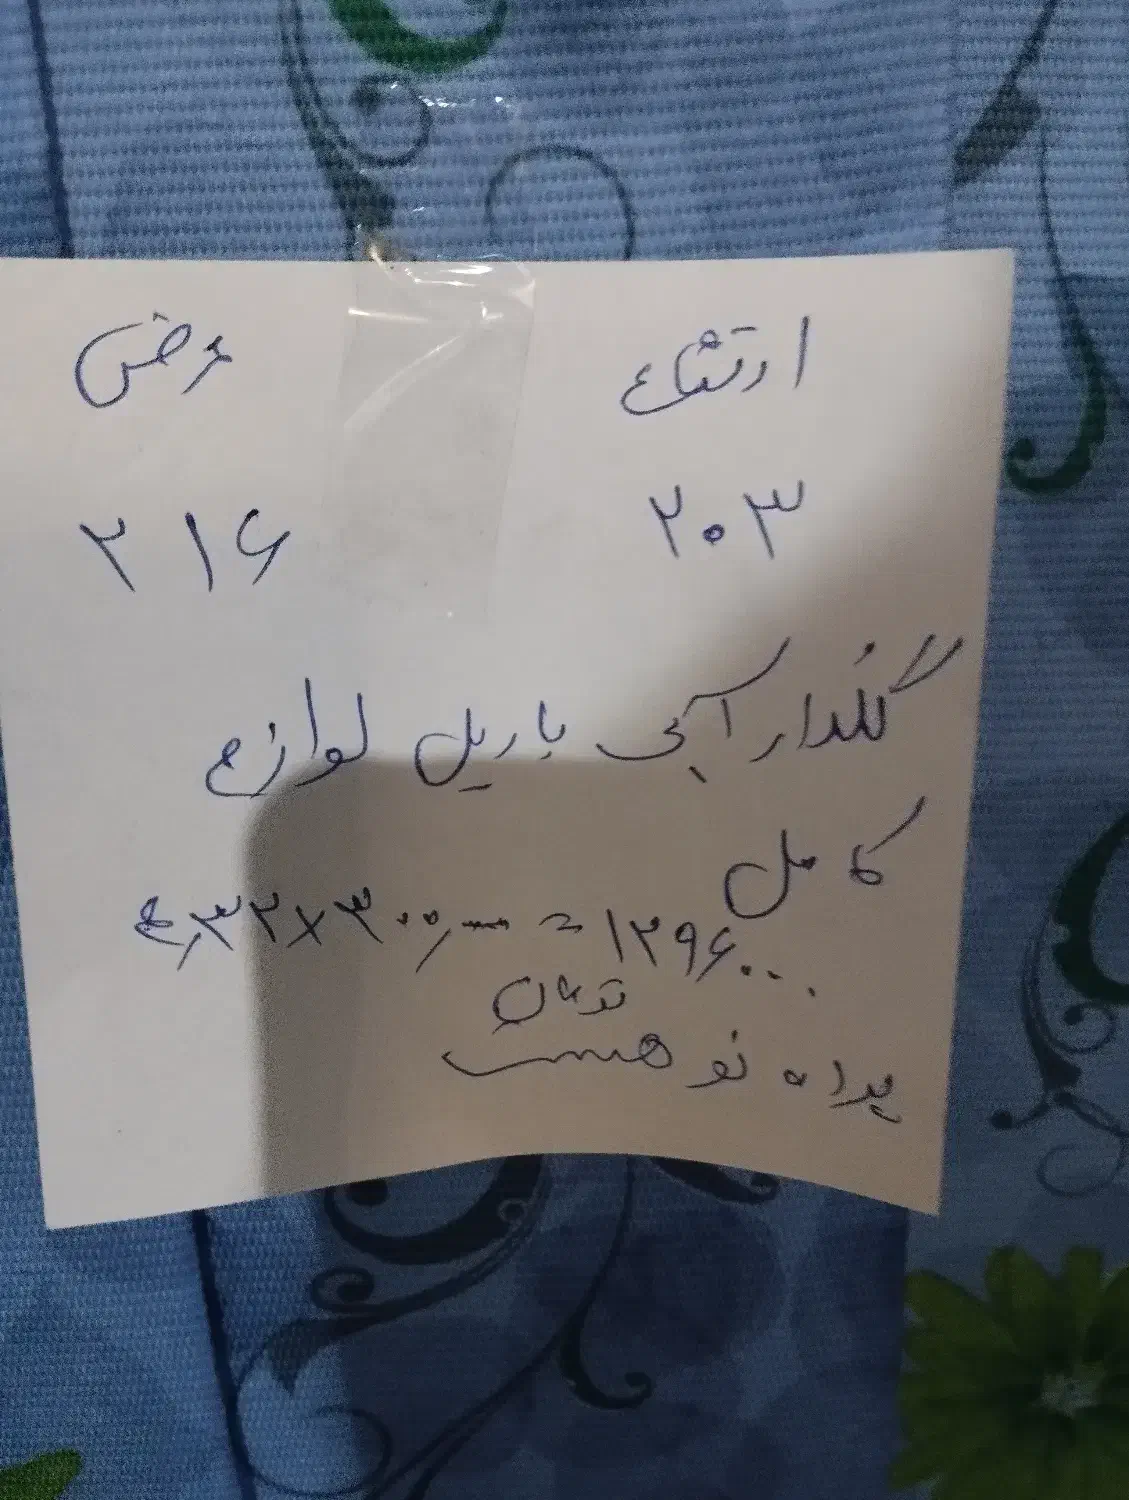 ارتفاع عرض
۲۰۳ ۲۱۶
گلدار آبی با ریل لوازم
کامل
۴,۳۲×۳۰۰,۰۰۰ = ۱۲۹۶۰۰۰
تومان
پرده نو هست